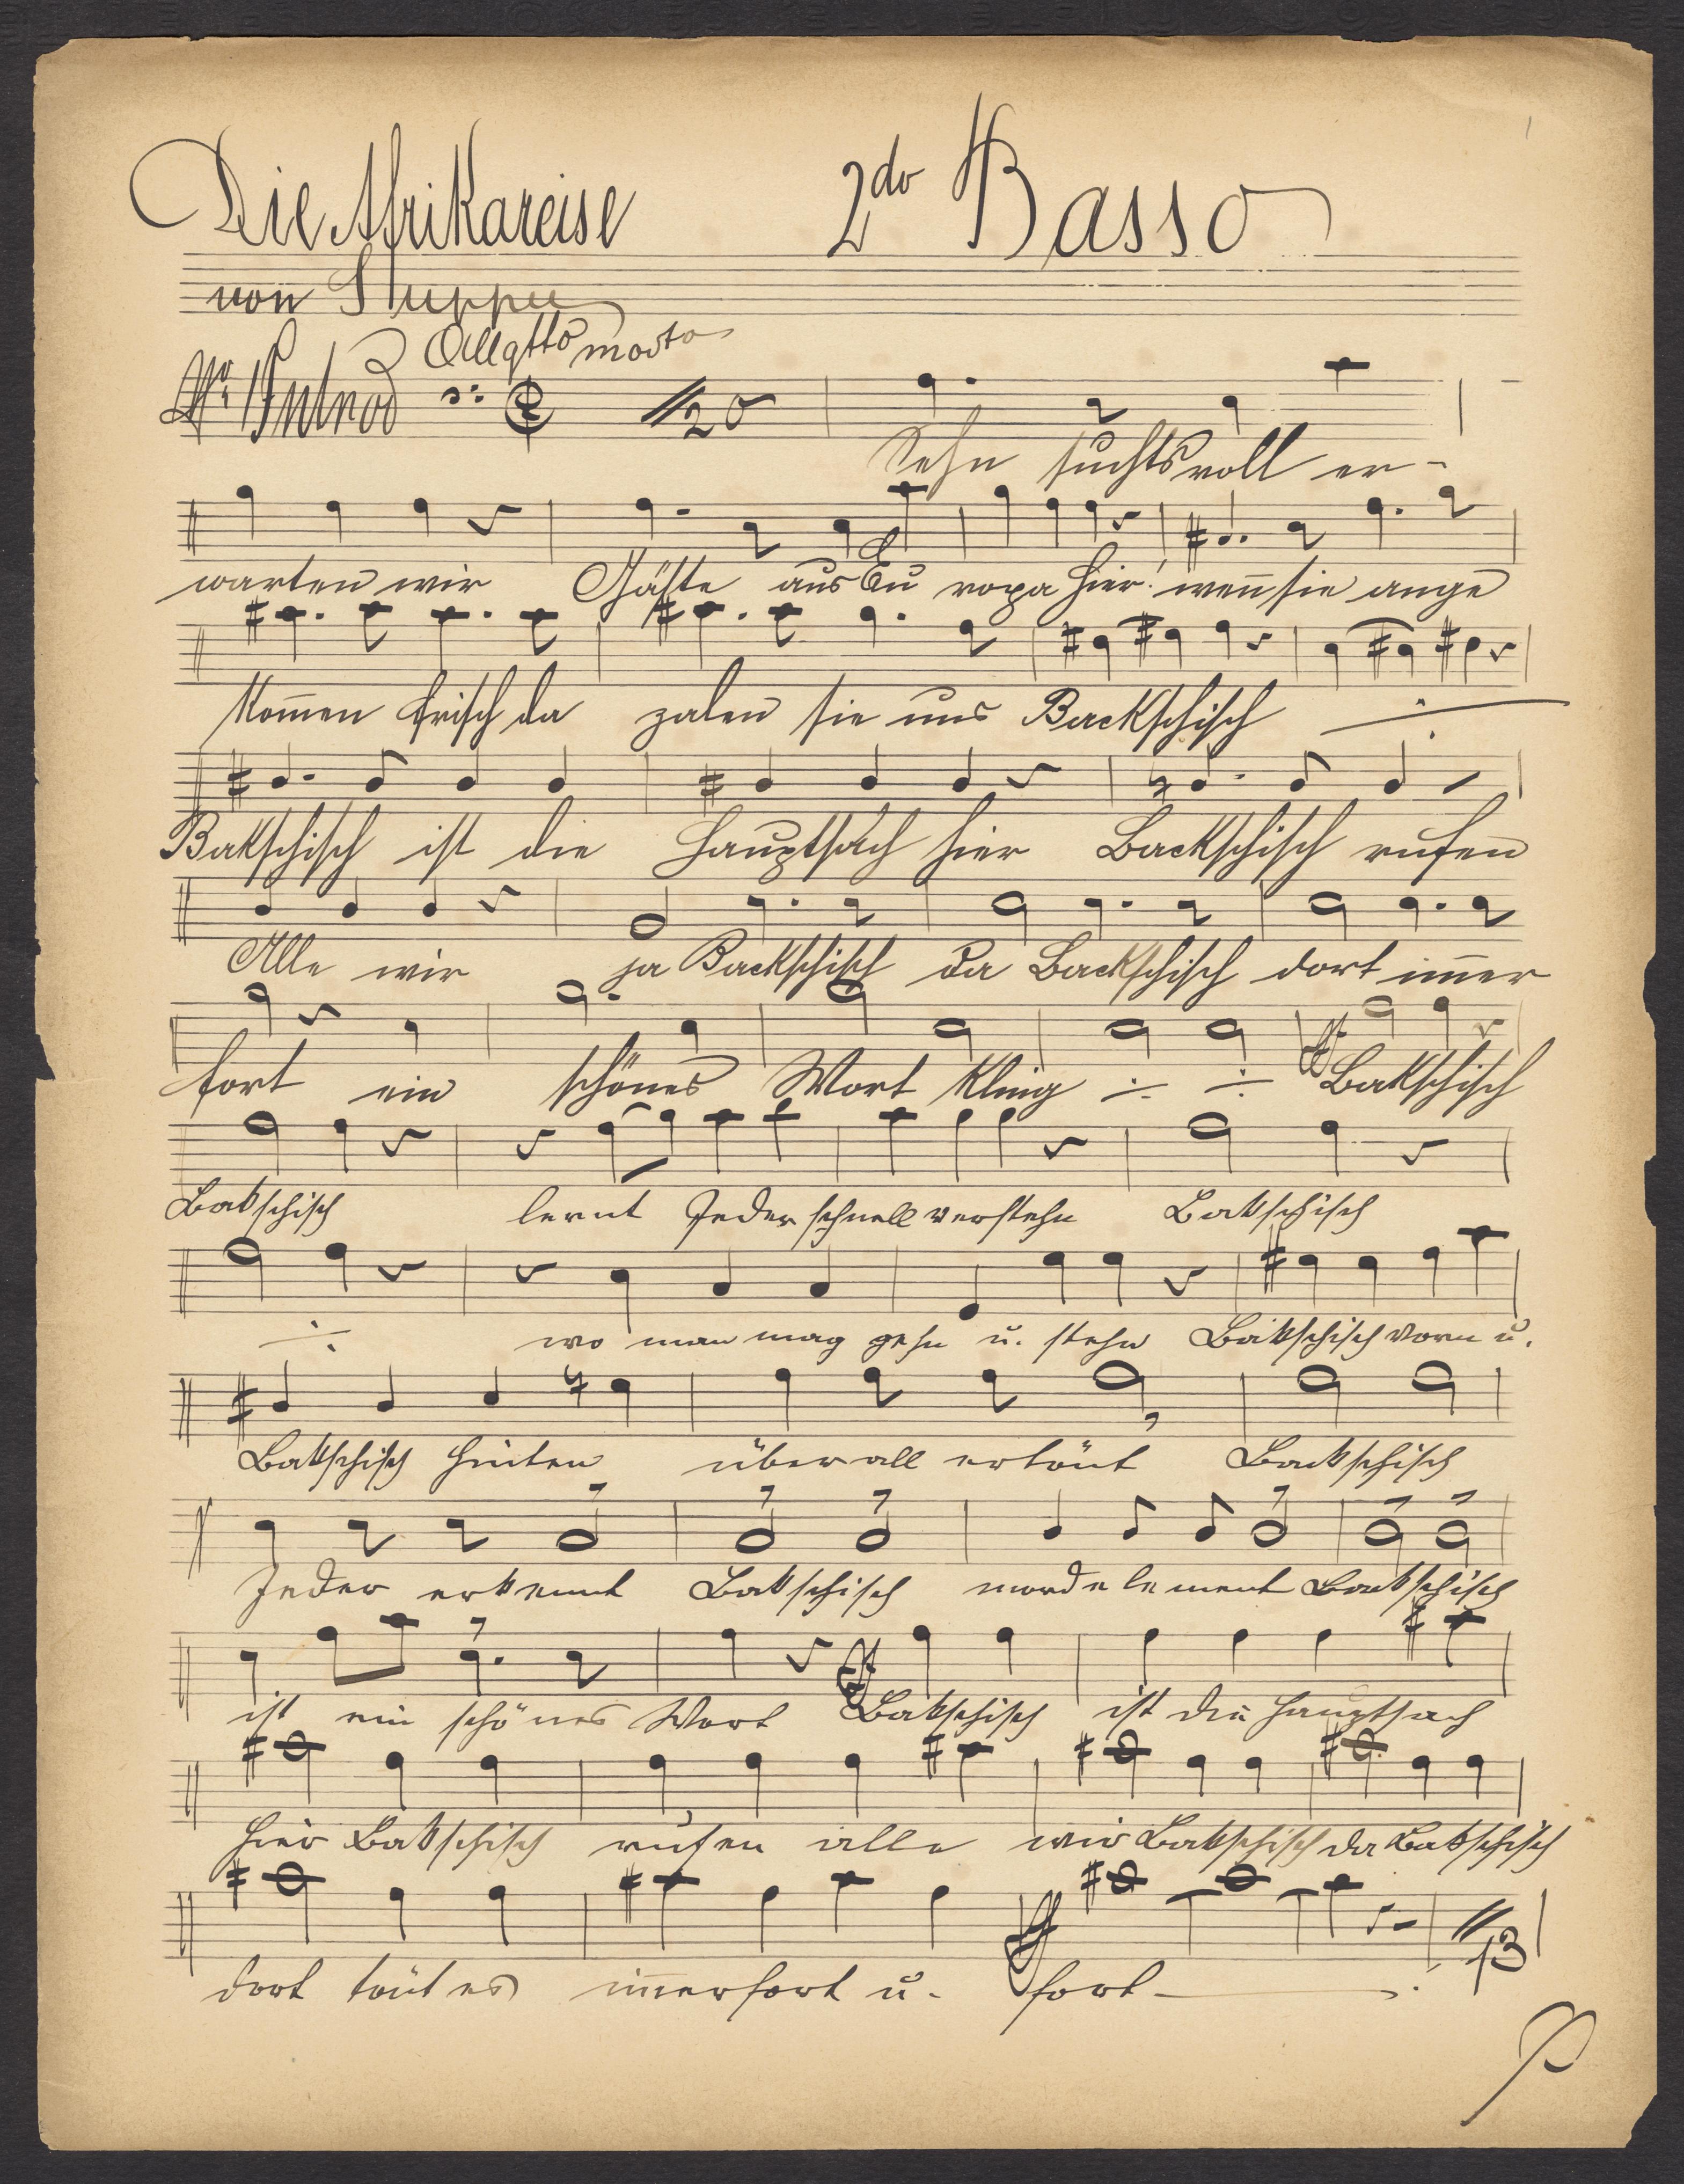 Die Afrikareise 2do Basso
von Suppee
No 1 Introd Allgtto modto
20
Sehn suchtsvoll er-
warten wir Gäste aus Eu ropa hier! weñ sie ange
kom̄en frisch da zalen sie uns Backschisch ·/·
Bakschisch ist die Hauptsach hier Backschisch rufen
Alle wir ja Backschisch da Backschisch dort im̄er
fort ein schönes Wort kling ·/· ·/· ff Bakschisch
Bakschisch lernt Jeder schnell verstehn Bakschisch
·/· wo man mag gehn u. stehn Bakschisch vorn u.
Bakschisch hinten überall ertönt Backschisch
Jeder erkennt Bakschisch mordelement Backschisch
ist ein schönes Wort ff Bakschisch ist die Hauptsach
hier Bakschisch rufen alle wir Bakschisch da Bakschisch
dort tönt es im̄erfort u. fort - .
13